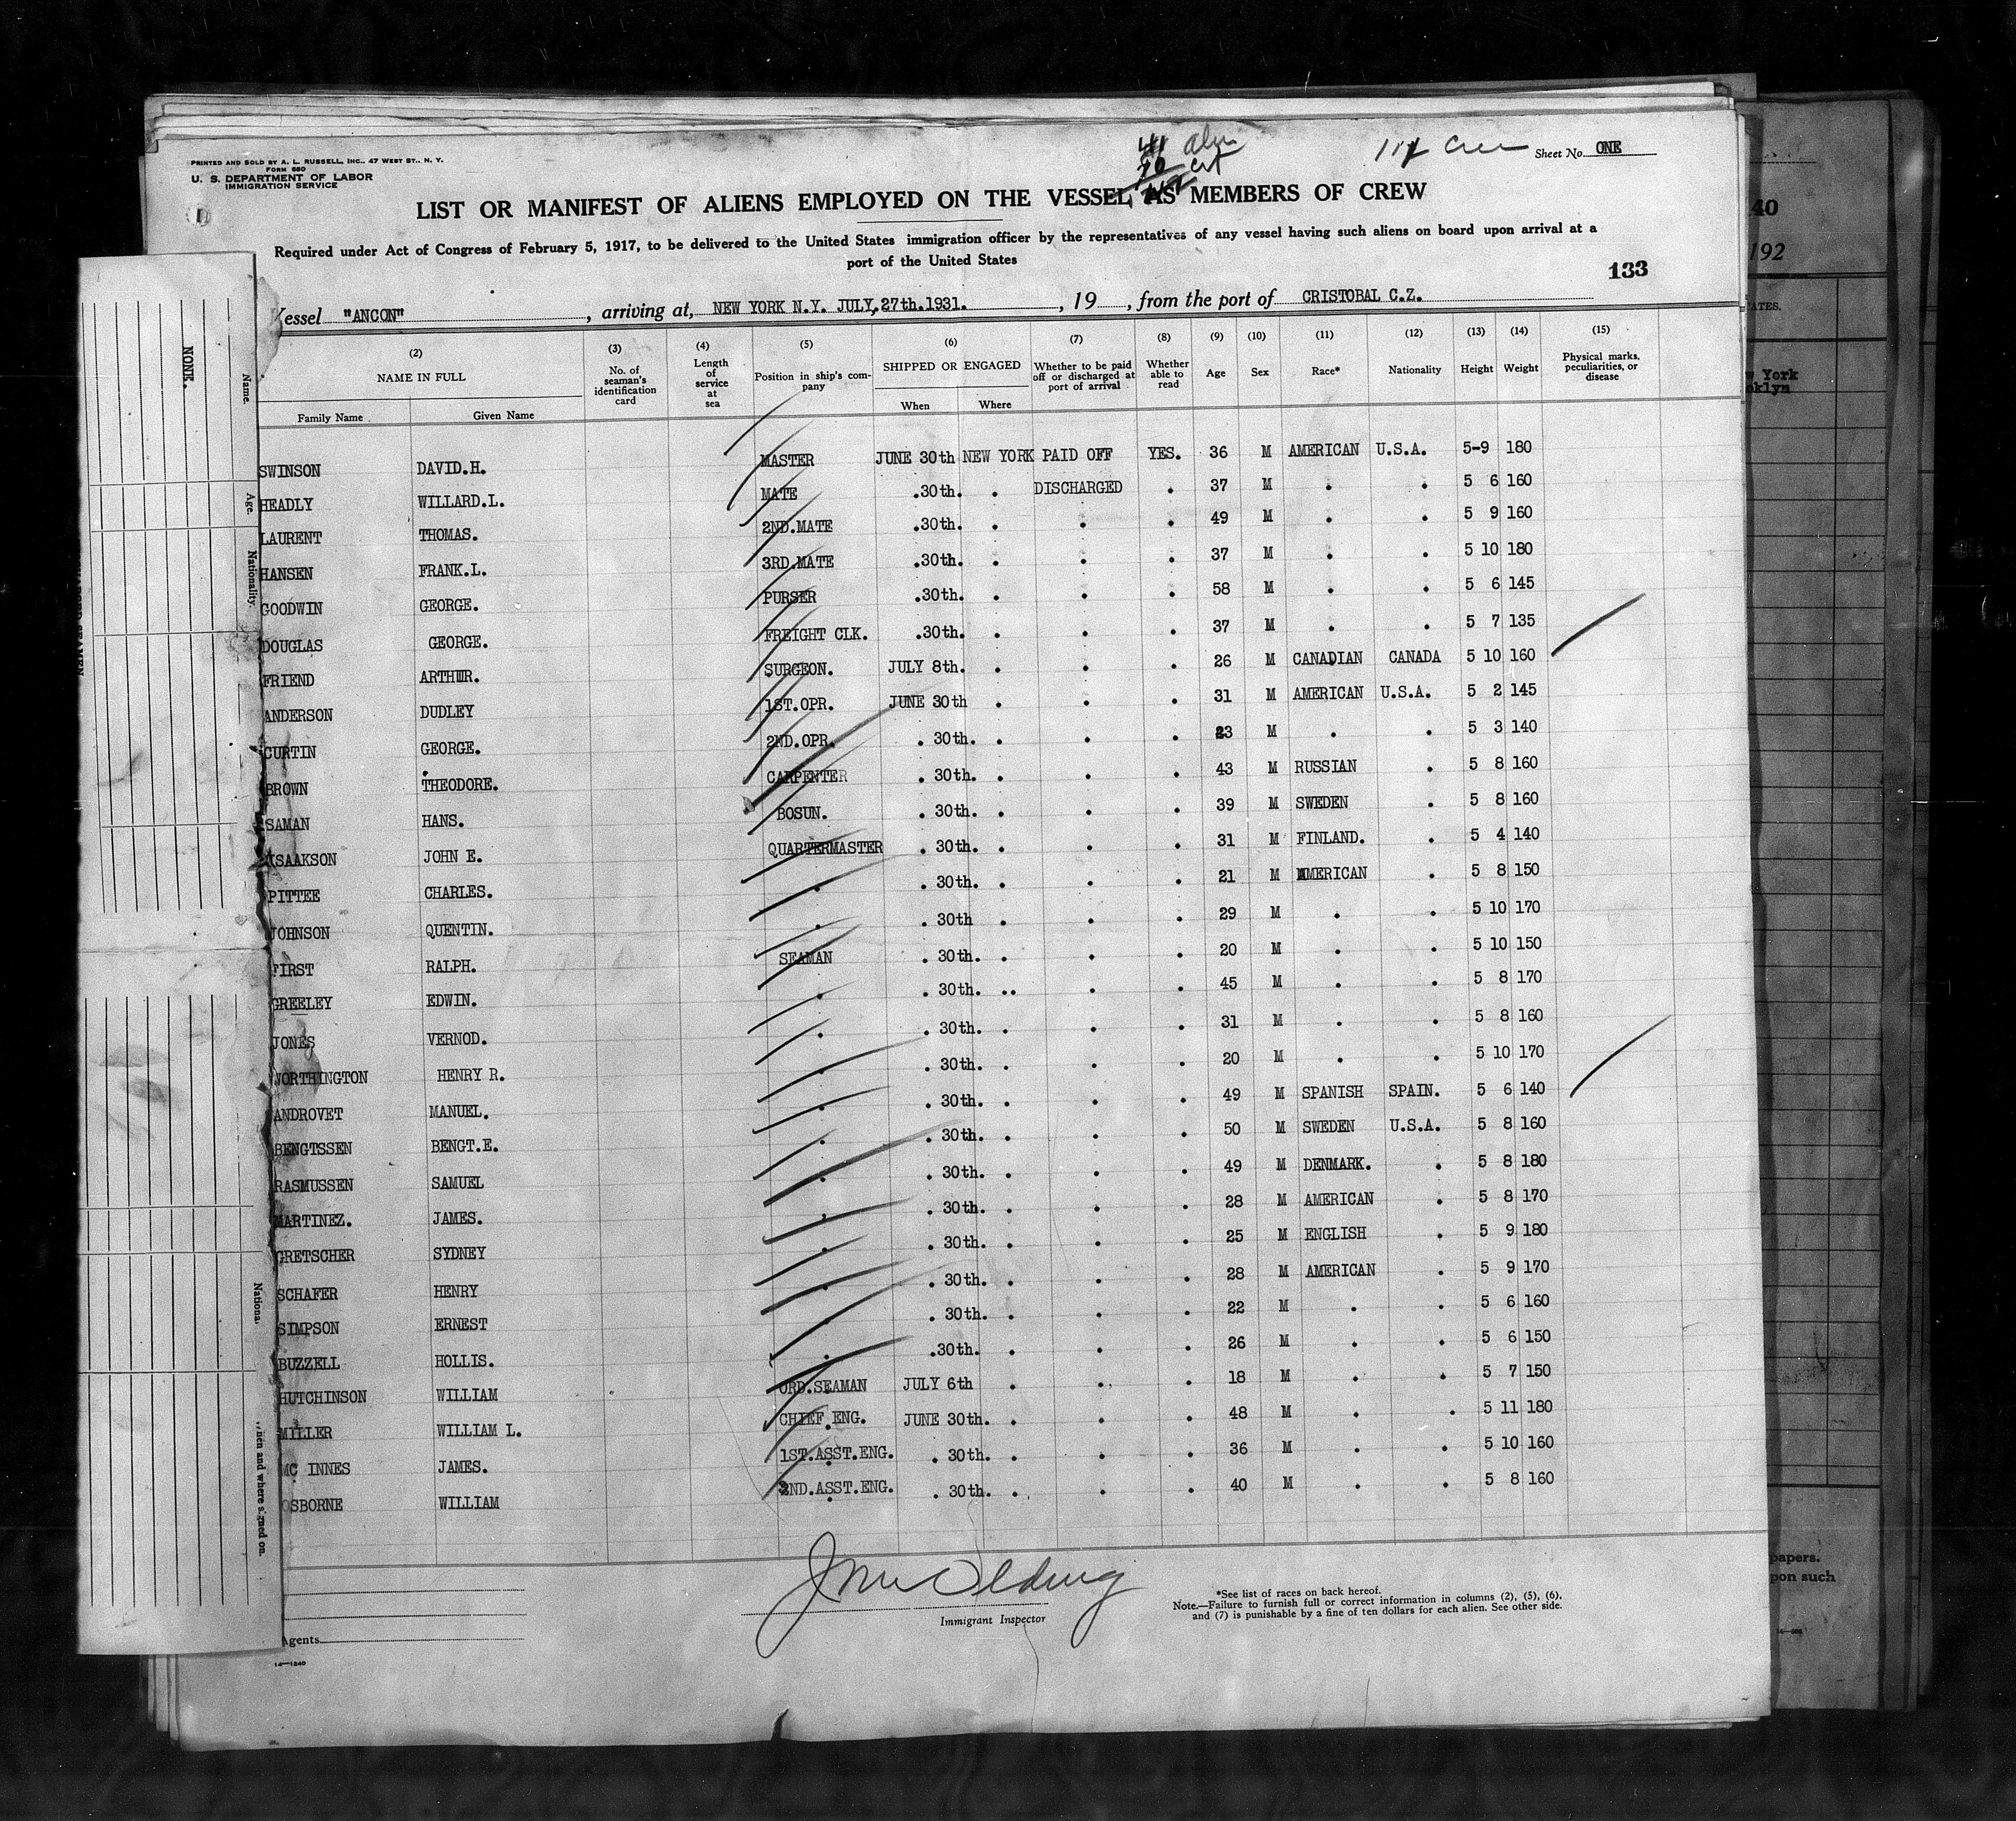 PRINTED AND SOLD BY A. L. RUSSELL, INC., 47 WEST ST., N. Y.
FORM 680
U. S. DEPARTMENT OF LABOR
IMMIGRATION SERVICE
41 alien
Crew
Sheet No. ONE
LIST OR MANIFEST OF ALIENS EMPLOYED ON THE VESSEL AS MEMBERS OF CREW
Required under Act of Congress of February 5, 1917, to be delivered to the United States immigration officer by the representatives of any vessel having such aliens on board upon arrival at a
port of the United States
133
Vessel "ANCON", arriving at, NEW YORK N.Y. JULY,27th.1931., 19, from the port of CRISTOBAL C.Z.
(2) (3) (4) (5) (6) (7) (8) (9) (10) (11) (12) (13) (14) (15)
NAME IN FULL
Family Name Given Name
No. of seaman's identification card
Length of service at sea
Position in ship's company
SHIPPED OR ENGAGED
When Where
Whether to be paid off or discharged at port of arrival
Whether able to read
Age Sex Race* Nationality Height Weight
Physical marks, peculiarities, or disease
SWINSON DAVID.H. MASTER JUNE 30th NEW YORK PAID OFF YES. 36 M AMERICAN U.S.A. 5-9 180
HEADLY WILLARD.L. MATE .30th. . DISCHARGED . 37 M . . 5 6 160
LAURENT THOMAS. 2ND.MATE .30th. . . . 49 M . . 5 9 160
HANSEN FRANK.L. 3RD.MATE .30th. . . . 37 M . . 5 10 180
GOODWIN GEORGE. PURSER .30th. . . . 58 M . . 5 6 145
DOUGLAS GEORGE. FREIGHT CLK. .30th. . . . 37 M . . 5 7 135
FRIEND ARTHUR. SURGEON. JULY 8th. . . . 26 M CANADIAN CANADA 5 10 160
ANDERSON DUDLEY 1ST.OPR. JUNE 30th . . . 31 M AMERICAN U.S.A. 5 2 145
CURTIN GEORGE. 2ND.OPR. . 30th. . . . 23 M . . 5 3 140
BROWN THEODORE. CARPENTER . 30th. . . . 43 M RUSSIAN . 5 8 160
SAMAN HANS. BOSUN. . 30th. . . . 39 M SWEDEN . 5 8 160
ISAAKSON JOHN E. QUARTERMASTER . 30th. . . . 31 M FINLAND. . 5 4 140
PITTEE CHARLES. . . 30th. . . . 21 M AMERICAN . 5 8 150
JOHNSON QUENTIN. . . 30th . . . 29 M . . 5 10 170
FIRST RALPH. SEAMAN . 30th. . . . 20 M . . 5 10 150
GREELEY EDWIN. . . 30th. .. . . 45 M . . 5 8 170
JONES VERNOD. . . 30th. . . . 31 M . . 5 8 160
WORTHINGTON HENRY R. . . 30th. . . . 20 M . . 5 10 170
ANDROVET MANUEL. . . 30th. . . . 49 M SPANISH SPAIN. 5 6 140
BENGTSSEN BENGT.E. . . 30th. . . . 50 M SWEDEN U.S.A. 5 8 160
RASMUSSEN SAMUEL . . 30th. . . . 49 M DENMARK. . 5 8 180
MARTINEZ. JAMES. . . 30th. . . . 28 M AMERICAN . 5 8 170
GRETSCHER SYDNEY . . 30th. . . . 25 M ENGLISH . 5 9 180
SCHAFER HENRY . . 30th. . . . 28 M AMERICAN . 5 9 170
SIMPSON ERNEST . . 30th. . . . 22 M . . 5 6 160
BUZZELL HOLLIS. . .30th. . . . 26 M . . 5 6 150
HUTCHINSON WILLIAM ORD.SEAMAN JULY 6th . . . 18 M . . 5 7 150
MILLER WILLIAM L. CHIEF ENG. JUNE 30th. . . . 48 M . . 5 11 180
MC INNES JAMES. 1ST.ASST.ENG. . 30th. . . . 36 M . . 5 10 160
OSBORNE WILLIAM 2ND.ASST.ENG. . 30th. . . . 40 M . . 5 8 160
Immigrant Inspector
*See list of races on back hereof.
Note.—Failure to furnish full or correct information in columns (2), (5), (6),
and (7) is punishable by a fine of ten dollars for each alien. See other side.
Agents
14—1240
NONE.
Name.
Age.
Nationality.
Nationa
when and where signed on.
40
192
TATES.
w York
oklyn
papers.
pon such